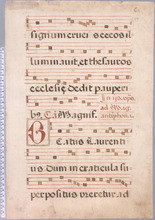 signum crucis cecos il
luminavit, et thesauros
ecclesie dedit pauperi
bus.
ad Magnificat
antiphona.
Beatus Laurenti
us dum in craticula su
perpositus ureretur, ad